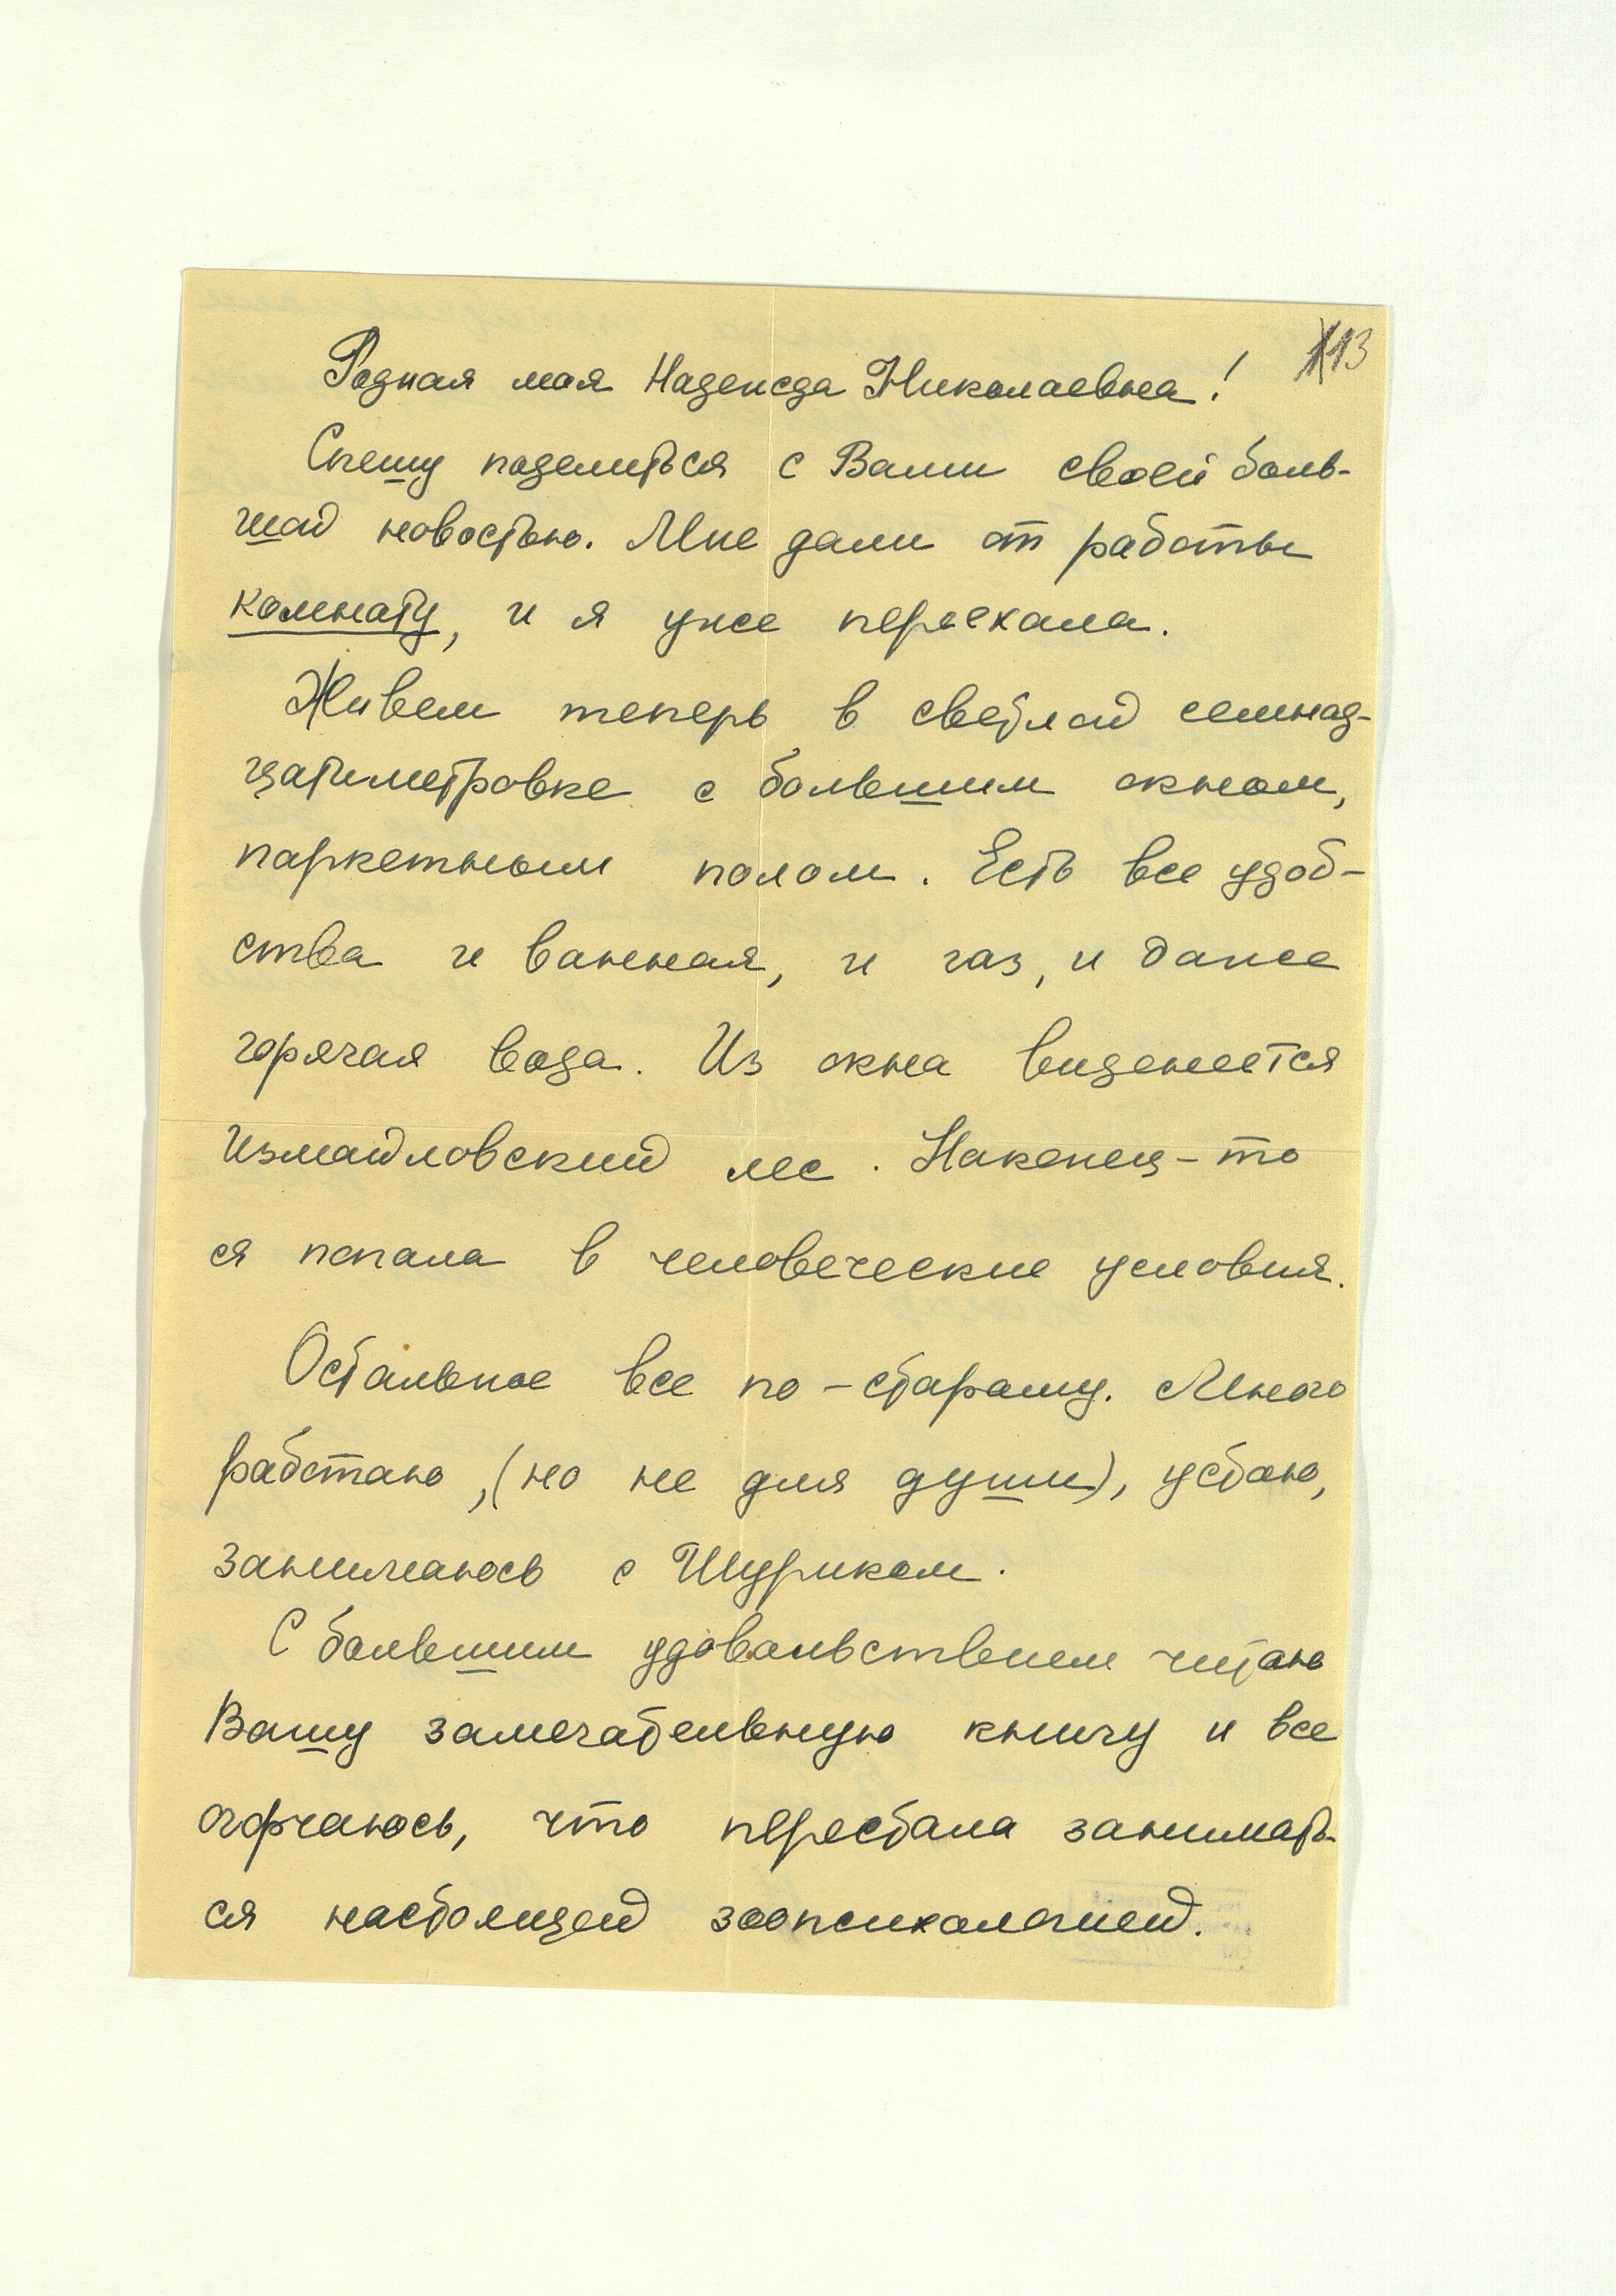 13
Родная моя Надежда Николаевна!
Спешу поделиться с Вами своей боль-
шой новостью. Мне дали от работы
комнату, и я уже переехала.
Живем теперь в светлой семнад-
цатиметровке с большим окном,
паркетным полом. Есть все удоб-
ства и ванная, и газ, и даже
горячая вода. Из окна виднеется
Измайловский лес. Наконец-то
я попала в человеческие условия.
Остальное все по-старому. Много
работаю, (но не для души), устаю,
занимаюсь с Шуриком.
С большим удовольствием читаю
Вашу замечательную книгу и все
огорчаюсь, что перестала занимать-
ся настоящей зоопсихологией.